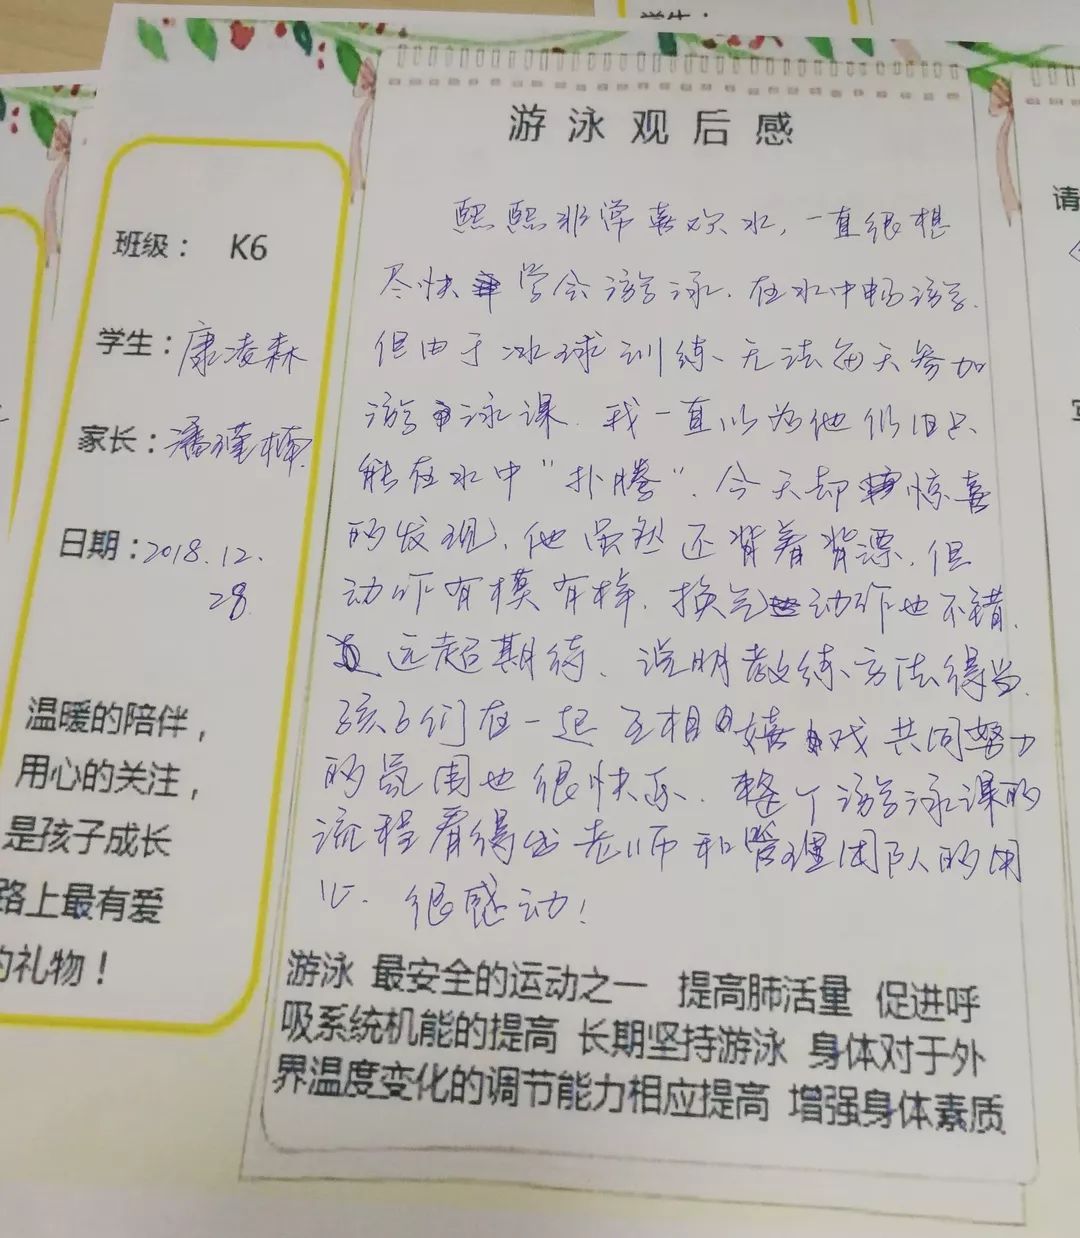 学生：
游泳观后感
班级： K6
学生：康凌森
家长：潘瑾楠
日期：2018.12.
28.
温暖的陪伴，
用心的关注，
是孩子成长
路上最有爱
的礼物！
熙熙非常喜欢水，一直很想
尽快学会游泳，在水中畅游。
但由于冰球训练、无法每天参加
游泳课。我一直以为他仍旧只
能在水中“扑腾”。今天却惊喜
的发现，他虽然还背着背漂，但
动作有模有样，换气动作也不错，
远超期待，说明教练方法得当。
孩子们在一起互相嬉戏共同努力
的氛围也很快乐。整个游泳课的
流程看得出老师和管理团队的用
心。很感动！
游泳 最安全的运动之一 提高肺活量 促进呼
吸系统机能的提高 长期坚持游泳 身体对于外
界温度变化的调节能力相应提高 增强身体素质
请